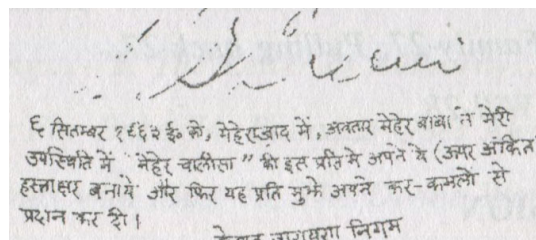 ६ सितम्बर १९६३ ई० को, मेहेराज़ाद में, अवतार मेहेर बाबा ने मेरी
उपस्थिति में "मेहेर चालीसा" की इस प्रति में अपने ये (ऊपर अंकित
हस्ताक्षर बनाये और फिर यह प्रति मुझे अपने कर-कमलों से
प्रदान कर दी।
केशव नारायण निगम